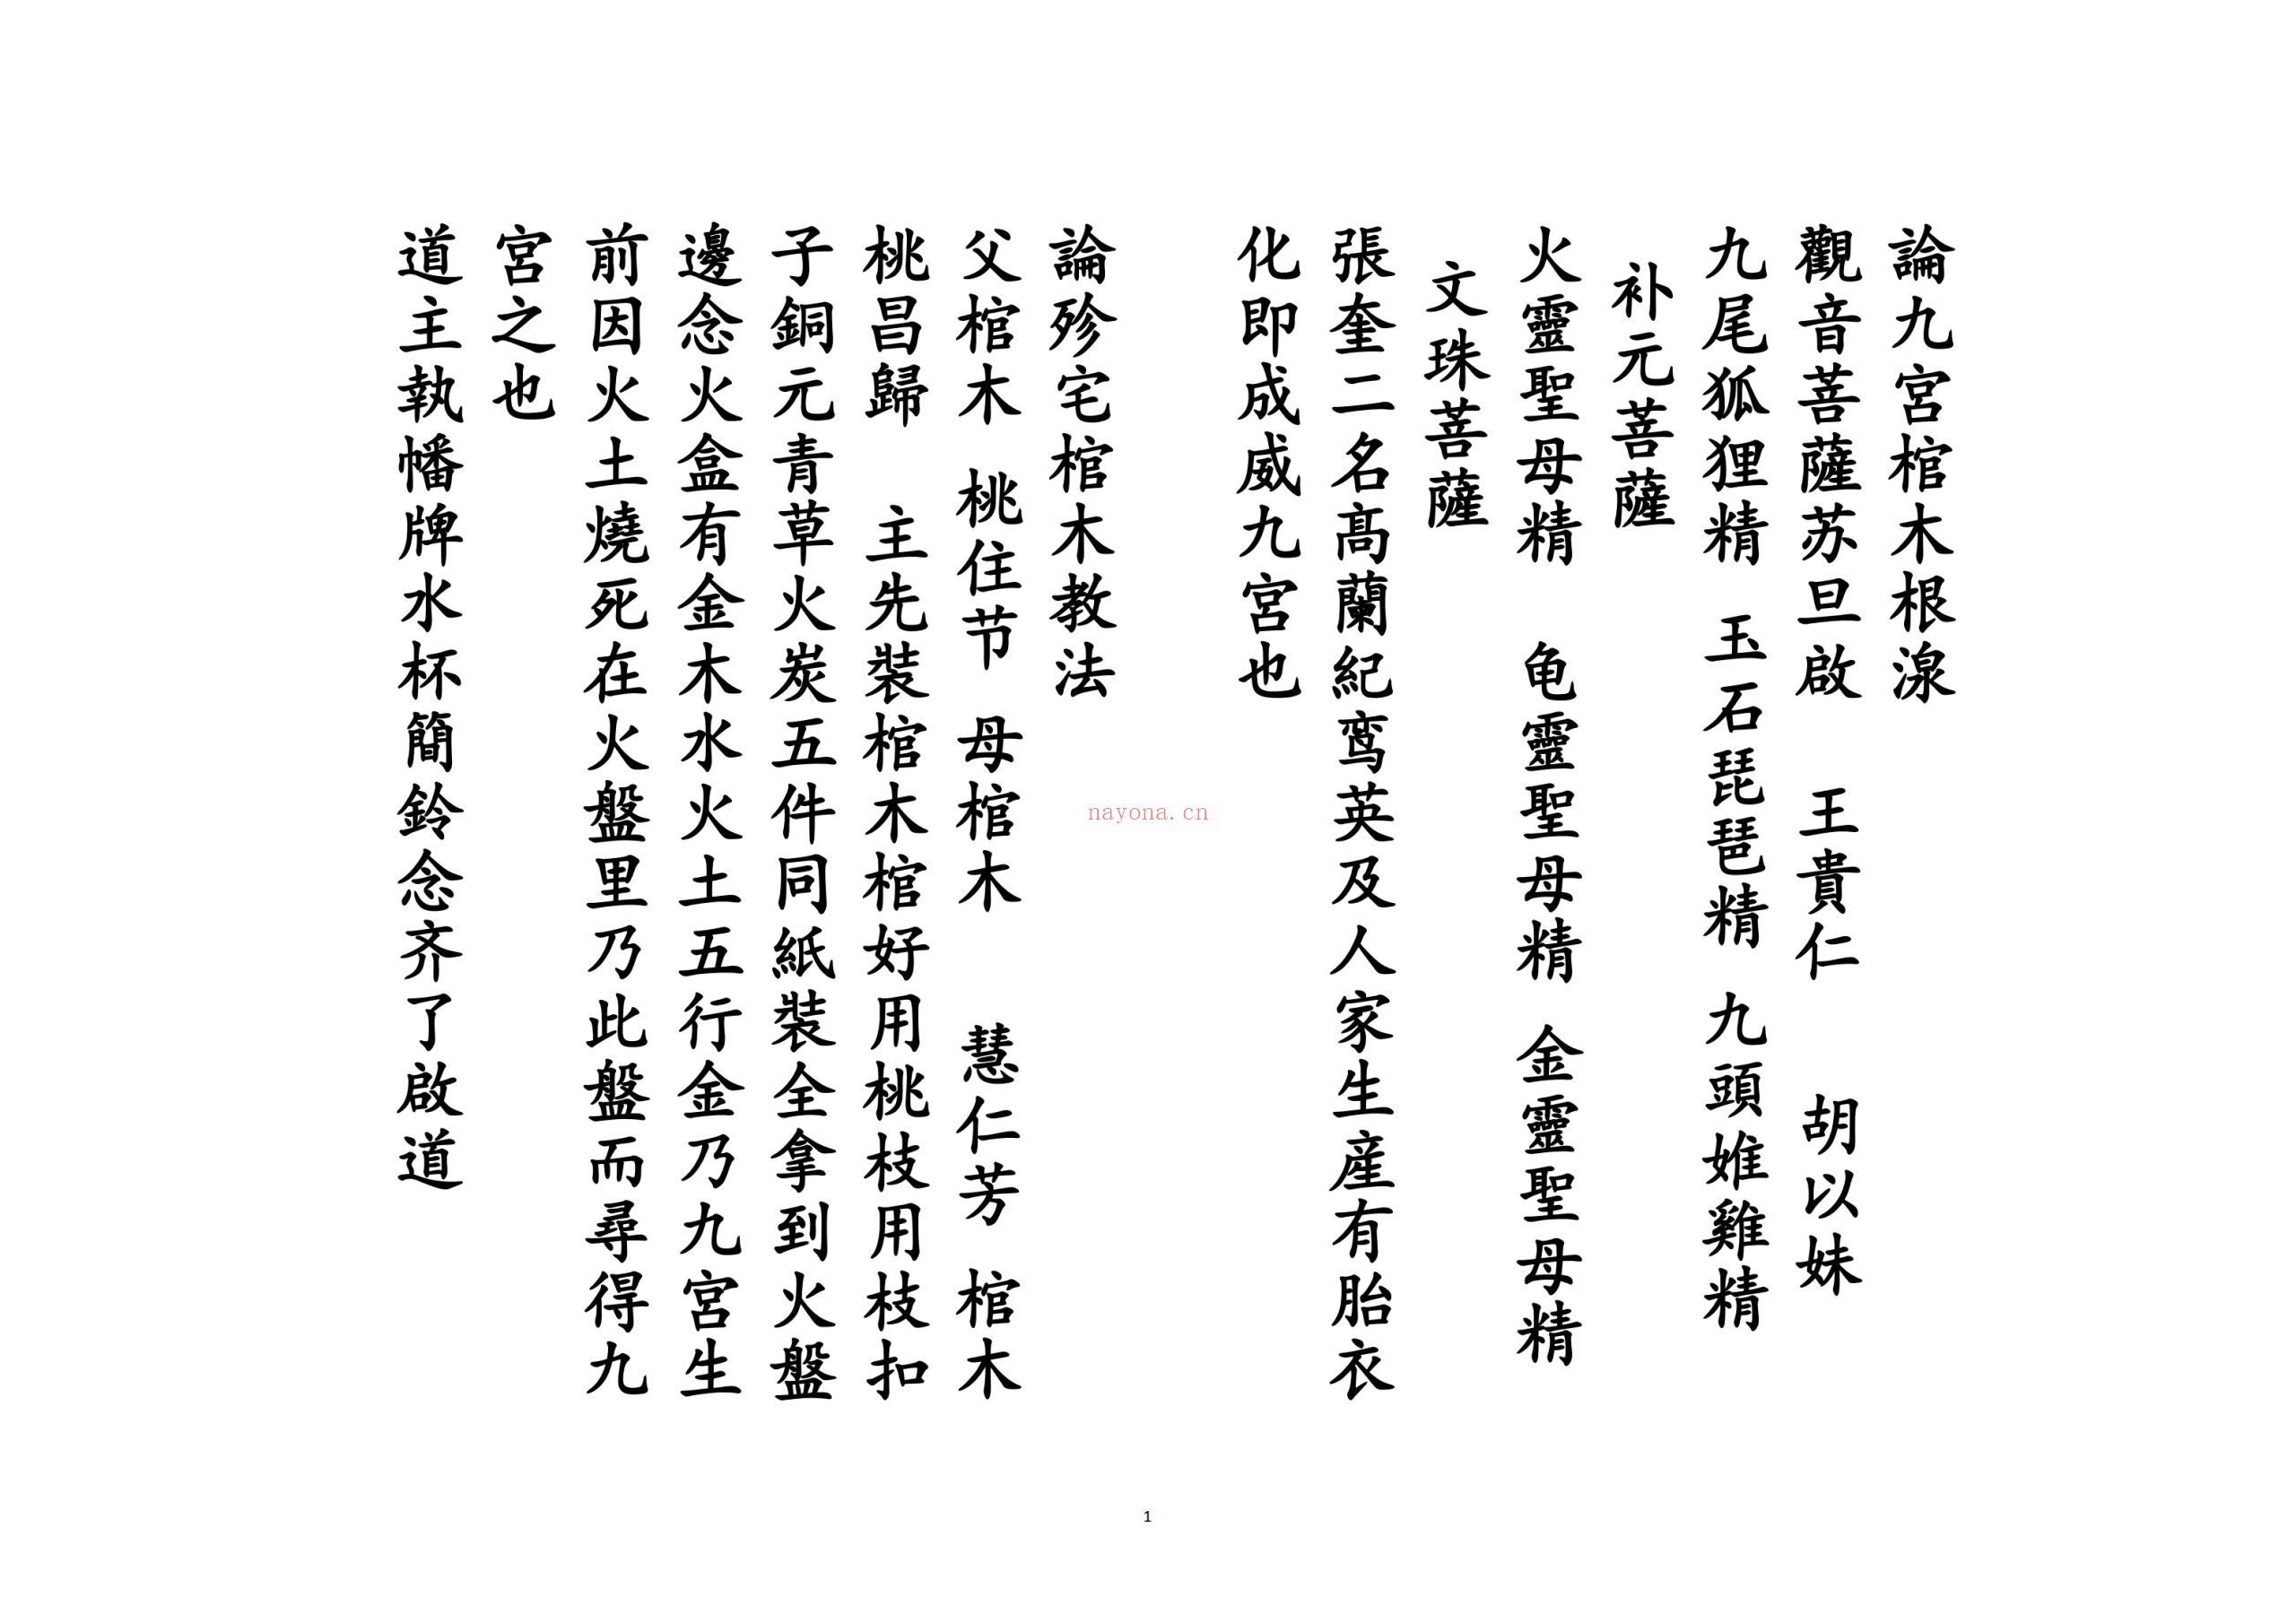 論九宮棺木根湶
觀音菩薩苏旦啟　王貴仁　胡以妹
九尾狐狸精　玉石琵琶精　九頭婎雞精
补元菩薩
火靈聖母精　龟靈聖母精　金靈聖母精
文珠菩薩
張奎二名高蘭紀鸾英及人家生産有胎衣
化即成威九宮也
論殄宅棺木教法
父棺木　桃住节　母棺木　慧仁芳　棺木
桃昌歸　主先裝棺木棺好用桃枝用枝扣
子銅元青草火炭五件同紙裝全拿到火盤
邊念火盒有金木水火土五行金乃九宮生
前因火土燒死在火盤里乃此盤而尋得九
宮之也
道主執幡牌水杯簡鈴念齐了啟道
nayona.cn
1